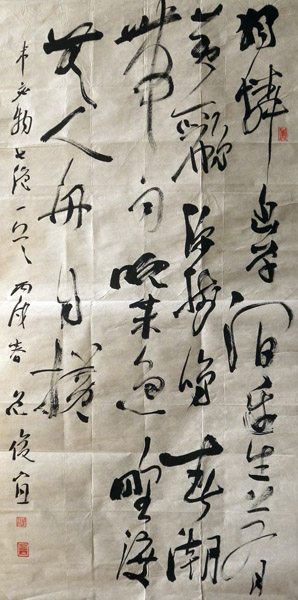 獨憐幽草澗邊生上有
黃鸝深樹鳴春潮
帶雨晚來急野渡
無人舟自橫
韋應物七絕一首 丙戌春 俊宜